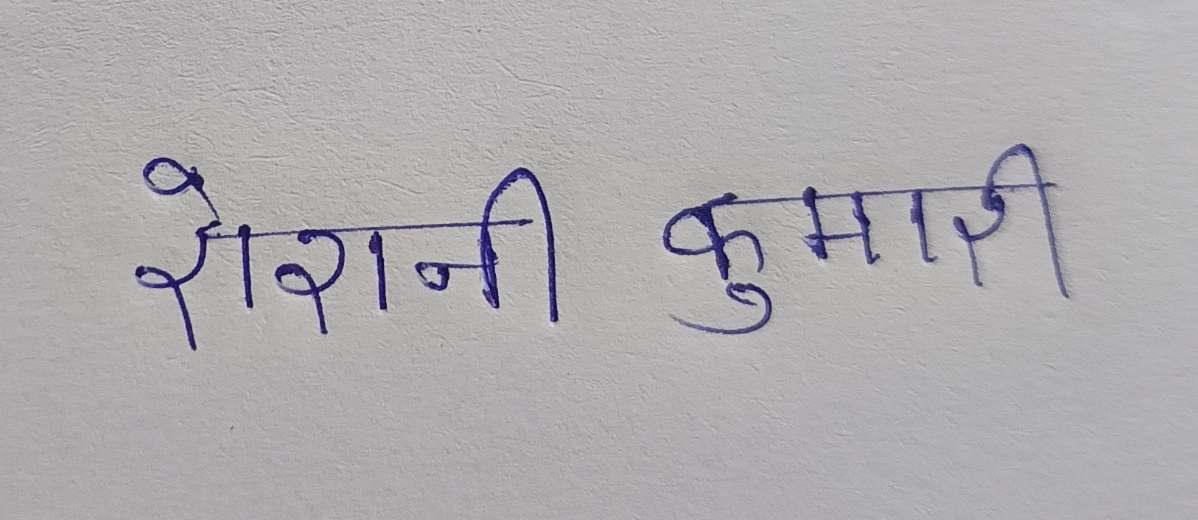 रोशनी कुमारी